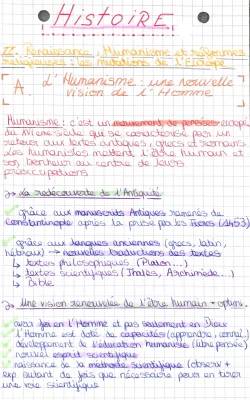 • HISTOIRE •
II. Renaissance, Humanisme et réformes
religieuses : les mutations de l'Europe
A. L'Humanisme : une nouvelle
vision de l'Homme
Humanisme : c'est un mouvement de pensée europé
du XVIème siècle qui se caractérise par un
retour aux textes antiques, grecs et romains
Les humanistes mettent l'être humain et
son bonheur au centre de leurs
préoccupations
La redécouverte de l'Antiquité
grâce aux manuscrits Antiques ramenés de
Constantinople après la prise par les Turcs (1453)
grâce aux langues anciennes (grecs, latin,
hébreu) → nouvelles traductions des textes
↳ textes philosophiques (Platon...)
↳ textes scientifiques (Thalès, Archimède...)
↳ Bible
Une vision renouvelée de l'être humain + optim.
avoir foi en l'Homme et pas seulement en Dieu
l'Homme est doté de capacités (apprendre,
développement de l'éducation humaniste (libre pensée)
nouvel esprit scientifique
naissance de la méthode scientifique (observer +
exp autant de fois que nécessaire pour en tirer
une scientifique